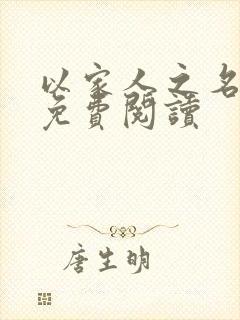 以家人之名
免費閱讀
唐生明